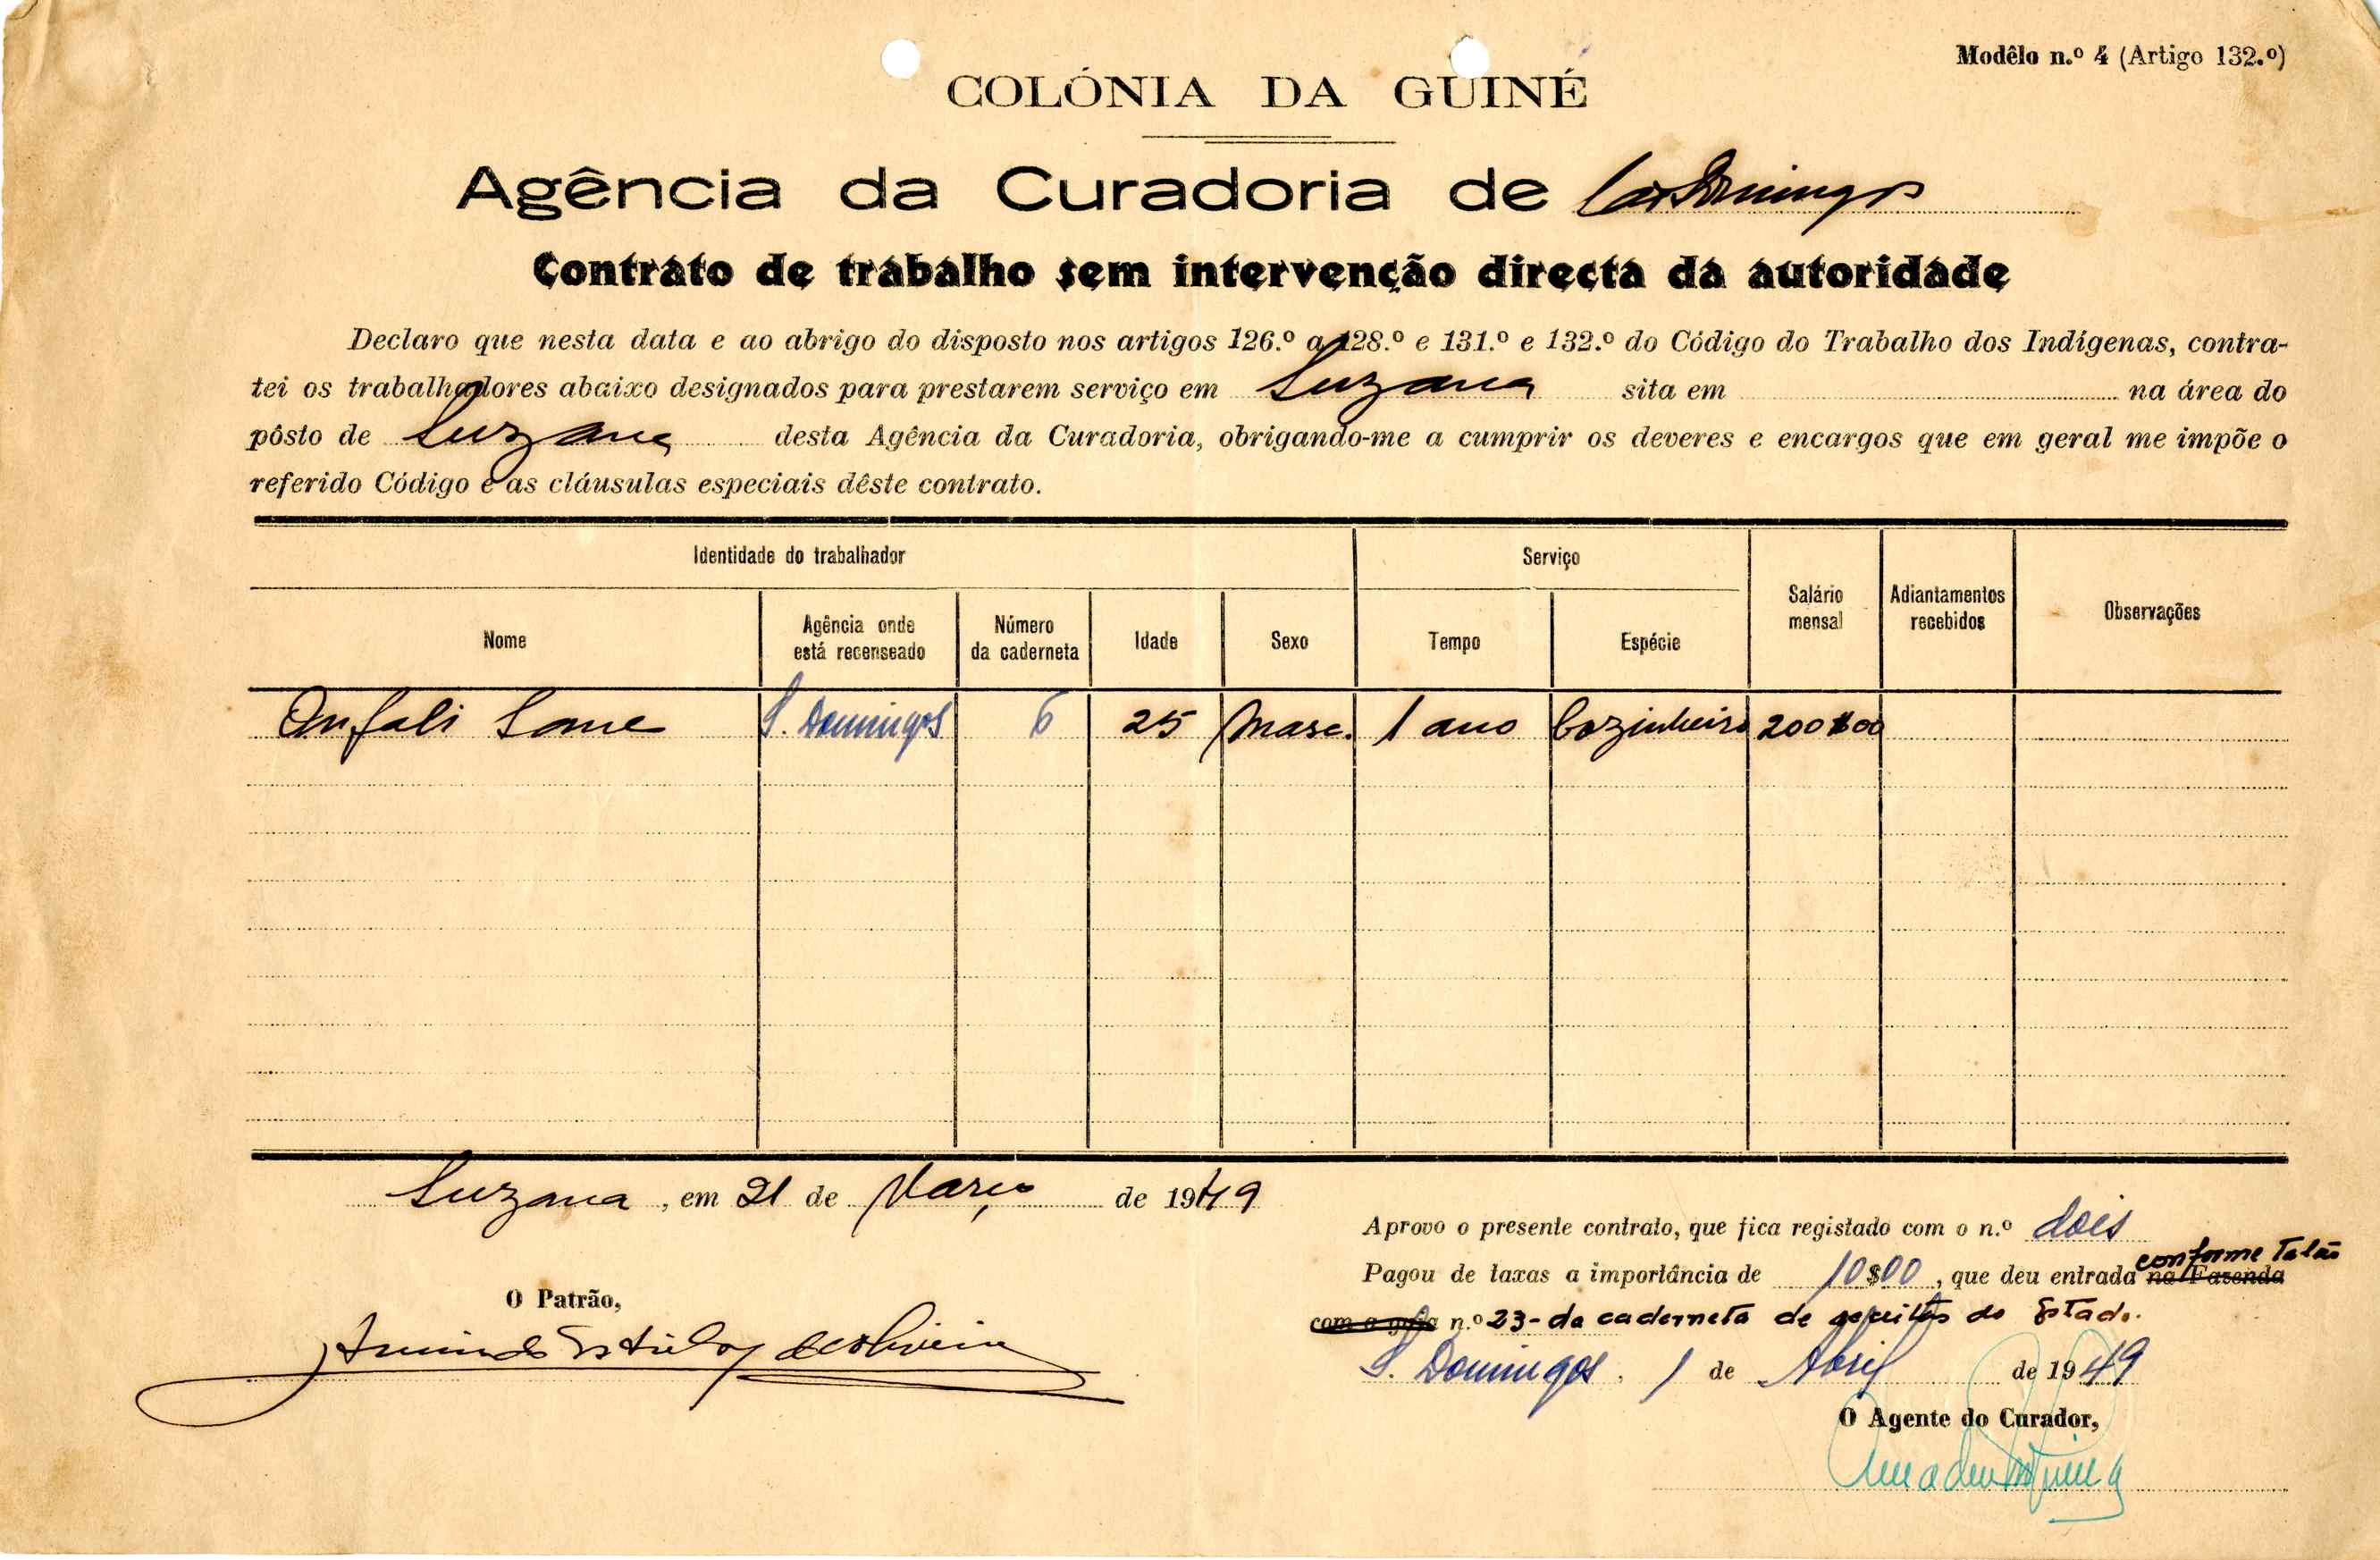 Modêlo n.º 4 (Artigo 132.º)
COLÓNIA DA GUINÉ
Agência da Curadoria de
Contrato de trabalho sem intervenção directa da autoridade
Declaro que nesta data e ao abrigo do disposto nos artigos 126.º a 128.º e 131.º e 132.º do Código do Trabalho dos Indígenas, contra-
tei os trabalhadores abaixo designados para prestarem serviço em Suzana sita em na área do
pôsto de Suzana desta Agência da Curadoria, obrigando-me a cumprir os deveres e encargos que em geral me impõe o
referido Código e as cláusulas especiais dêste contrato.
Identidade do trabalhador Serviço Salário mensal Adiantamentos recebidos Observações
Nome Agência onde está recenseado Número da caderneta Idade Sexo Tempo Espécie
Sane S. Domingos 6 25 Masc. 1 ano Cozinheiro 200$00
Suzana, em 21 de Março de 1949
Aprovo o presente contrato, que fica registado com o n.º dois
conforme Talão
Pagou de taxas a importância de 10$00, que deu entrada na Fazenda
com a guia n.º 23-da caderneta de receitas do Estado.
O Patrão,
S. Domingos, 1 de Abril de 1949
O Agente do Curador,